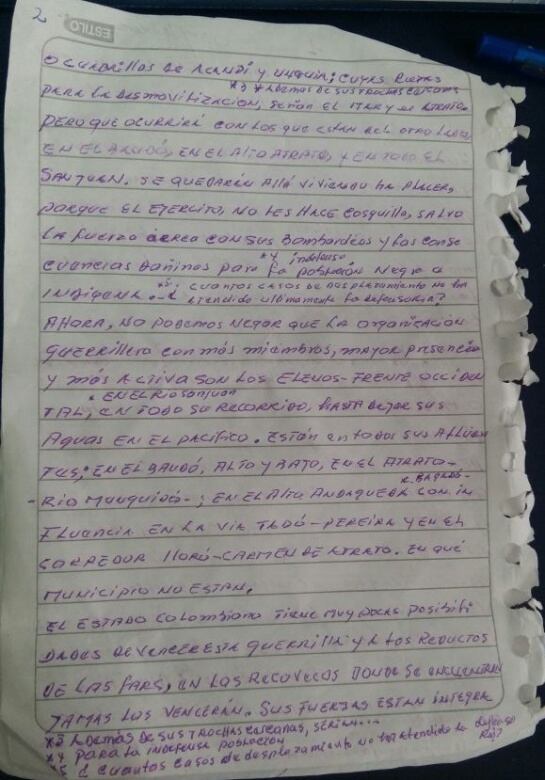 2
ESTILO
O CUADRILLAS DE ACANDÍ Y UNGUÍA; CUYAS RUTAS
*3 *ADEMAS DE SUS TROCHAS CERCANAS
PARA LA DESMOVILIZACION, SERÍAN EL MAR Y EL ATRATO.
PERO QUE OCURRIRÁ CON LOS QUE ESTAN DEL OTRO LADO,
EN EL BAUDÓ, EN EL ALTO ATRATO, Y EN TODO EL
SAN JUAN. SE QUEDARÁN ALLÁ VIVIENDO HA PLACER,
PORQUE EL EJERCITO, NO LES HACE COSQUILLA, SALVO
LA FUERZA AEREA CON SUS BOMBARDEOS Y LAS CONSE
*4 indefensa
CUENCIAS DAÑINAS PARA LA POBLACIÓN NEGRA E
INDIGENA. *5 ¿ CUANTOS CASOS DE DESPLAZAMIENTO NO HA
ATENDIDO ULTIMAMENTE LA DEFENSORIA?
AHORA, NO PODEMOS NEGAR QUE LA ORGANIZACIÓN
GUERRILLERA CON MÁS MIEMBROS, MAYOR PRESENCIA
Y MÁS ACTIVA SON LOS ELENOS-FRENTE OCCIDEN
. EN EL RIO SAN JUAN
TAL, EN TODO SU RECORRIDO, HASTA DEJAR SUS
AGUAS EN EL PACÍFICO. ESTÁN EN TODOS SUS AFLUEN
TES; EN EL BAUDÓ, ALTO Y BAJO, EN EL ATRATO-
R. BAGADÓ-
- RIO MUNGUIDÓ-; EN EL ALTO ANDAGUEDA CON IN
FLUENCIA EN LA VIA TADÓ-PEREIRA Y EN EL
CORREDOR LLORÓ-CARMEN DE ATRATO. EN QUÉ
MUNICIPIO NO ESTAN.
EL ESTADO COLOMBIANO TIENE MUY POCAS POSIBILI
DADES DE VENCER ESTA GUERRILLA Y A LOS REDUCTOS
DE LAS FARS, EN LOS RECOVECOS DONDE SE ENCUENTRAN
JAMAS LOS VENCERÁN. SUS FUERZAS ESTAN INTEGRA
*3 ADEMAS DE SUS TROCHAS CERCANAS, SERIAN...
*4 PARA LA INDEFENSA POBLACIÓN
*5 ¿ Cuantos casos de desplazamiento no ha atendido la defenso
ría?